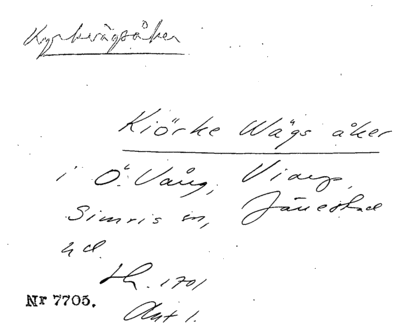 Kyrkvägsåker
Kiörke Wägs åker
i Ö. Vång, Viarp,
Simris sn, Järrestad
hd.
Lh. 1701
Akt 1.
Nr 7705.